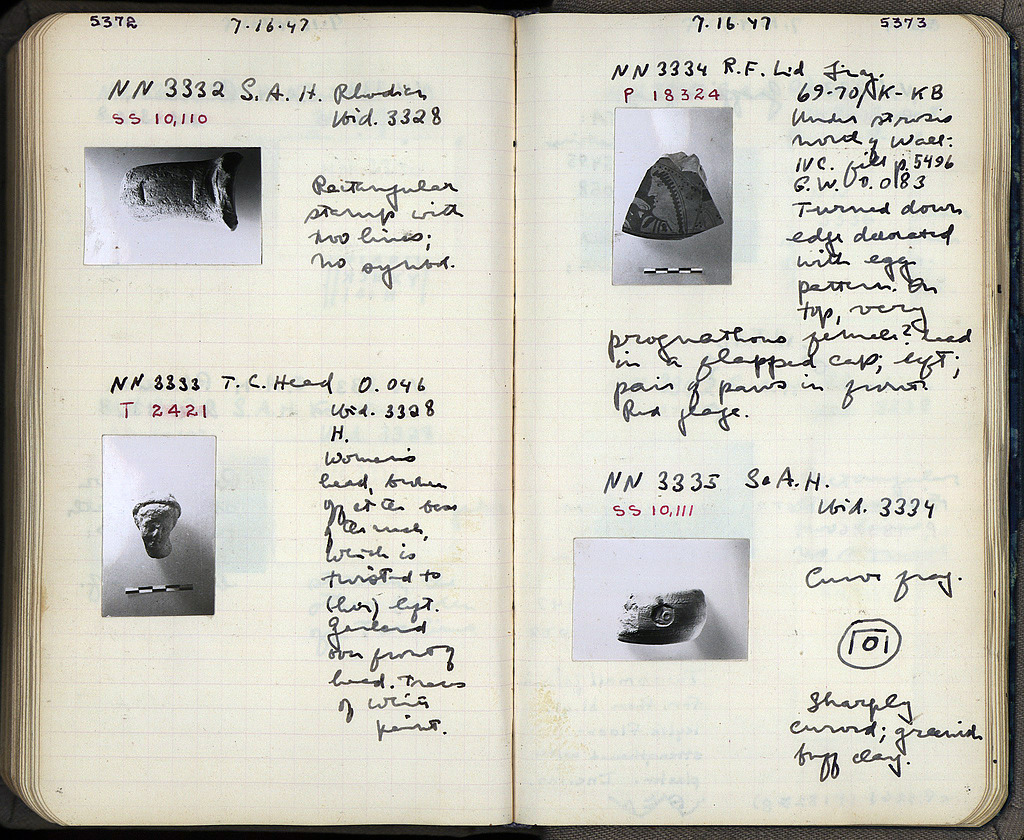 5372
7.16.47
NN 3332 S.A.H. Rhodian
SS 10,110
Ibid. 3328
Rectangular
stamp with
two lines;
no symbol.
NN 3333 T.C. Head 0.046
T 2421
Ibid. 3328
H.
Woman's
head, broken
off at the base
of the neck,
which is
twisted to
(her) left.
Garland
over front of
head. Traces
of white
paint.
7.16.47
5373
NN 3334 R.F. Lid Frag.
P 18324
69-70/K-KB
Under strosis
north of Wall:
IVC. fill p. 5496
G.W. D. 0.083
Turned down
edge decorated
with egg
pattern. On
top, very
prognathous female? head
in a flapped cap, left;
pair of paws in front.
Red glaze.
NN 3335 S.A.H.
SS 10,111
Ibid. 3334
Curve frag.
Sharply
curved; greenish
buff clay.